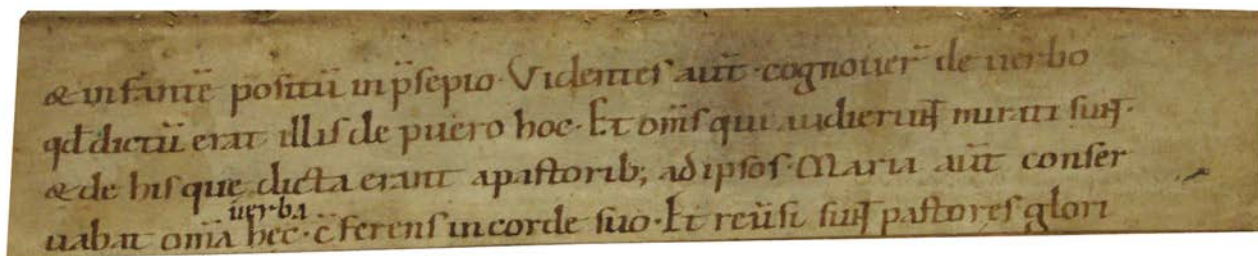 & infantē positū in p̄sepio. Videntes aūt. cognouer̄ de uerbo
qđ dictū erat illis de puero hoc. Et om̄s qui audierunt mirati sunt.
& de his que dicta erant a pastorib; ad ipsos. Maria aūt conser
uabat om̄ia uerba hec. c̄ferens in corde suo. Et reūsi sunt pastores glori